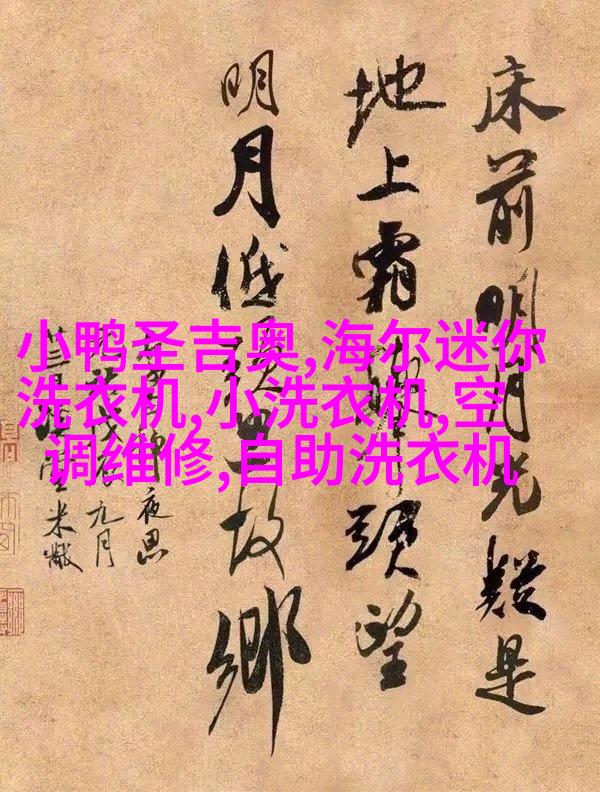 小鸭圣吉奥,海尔迷你
洗衣机,小洗衣机,空
调维修,自助洗衣机
床前明月光疑是
地上霜頭望
明月低頭思故鄉
夜思
九月
米黻